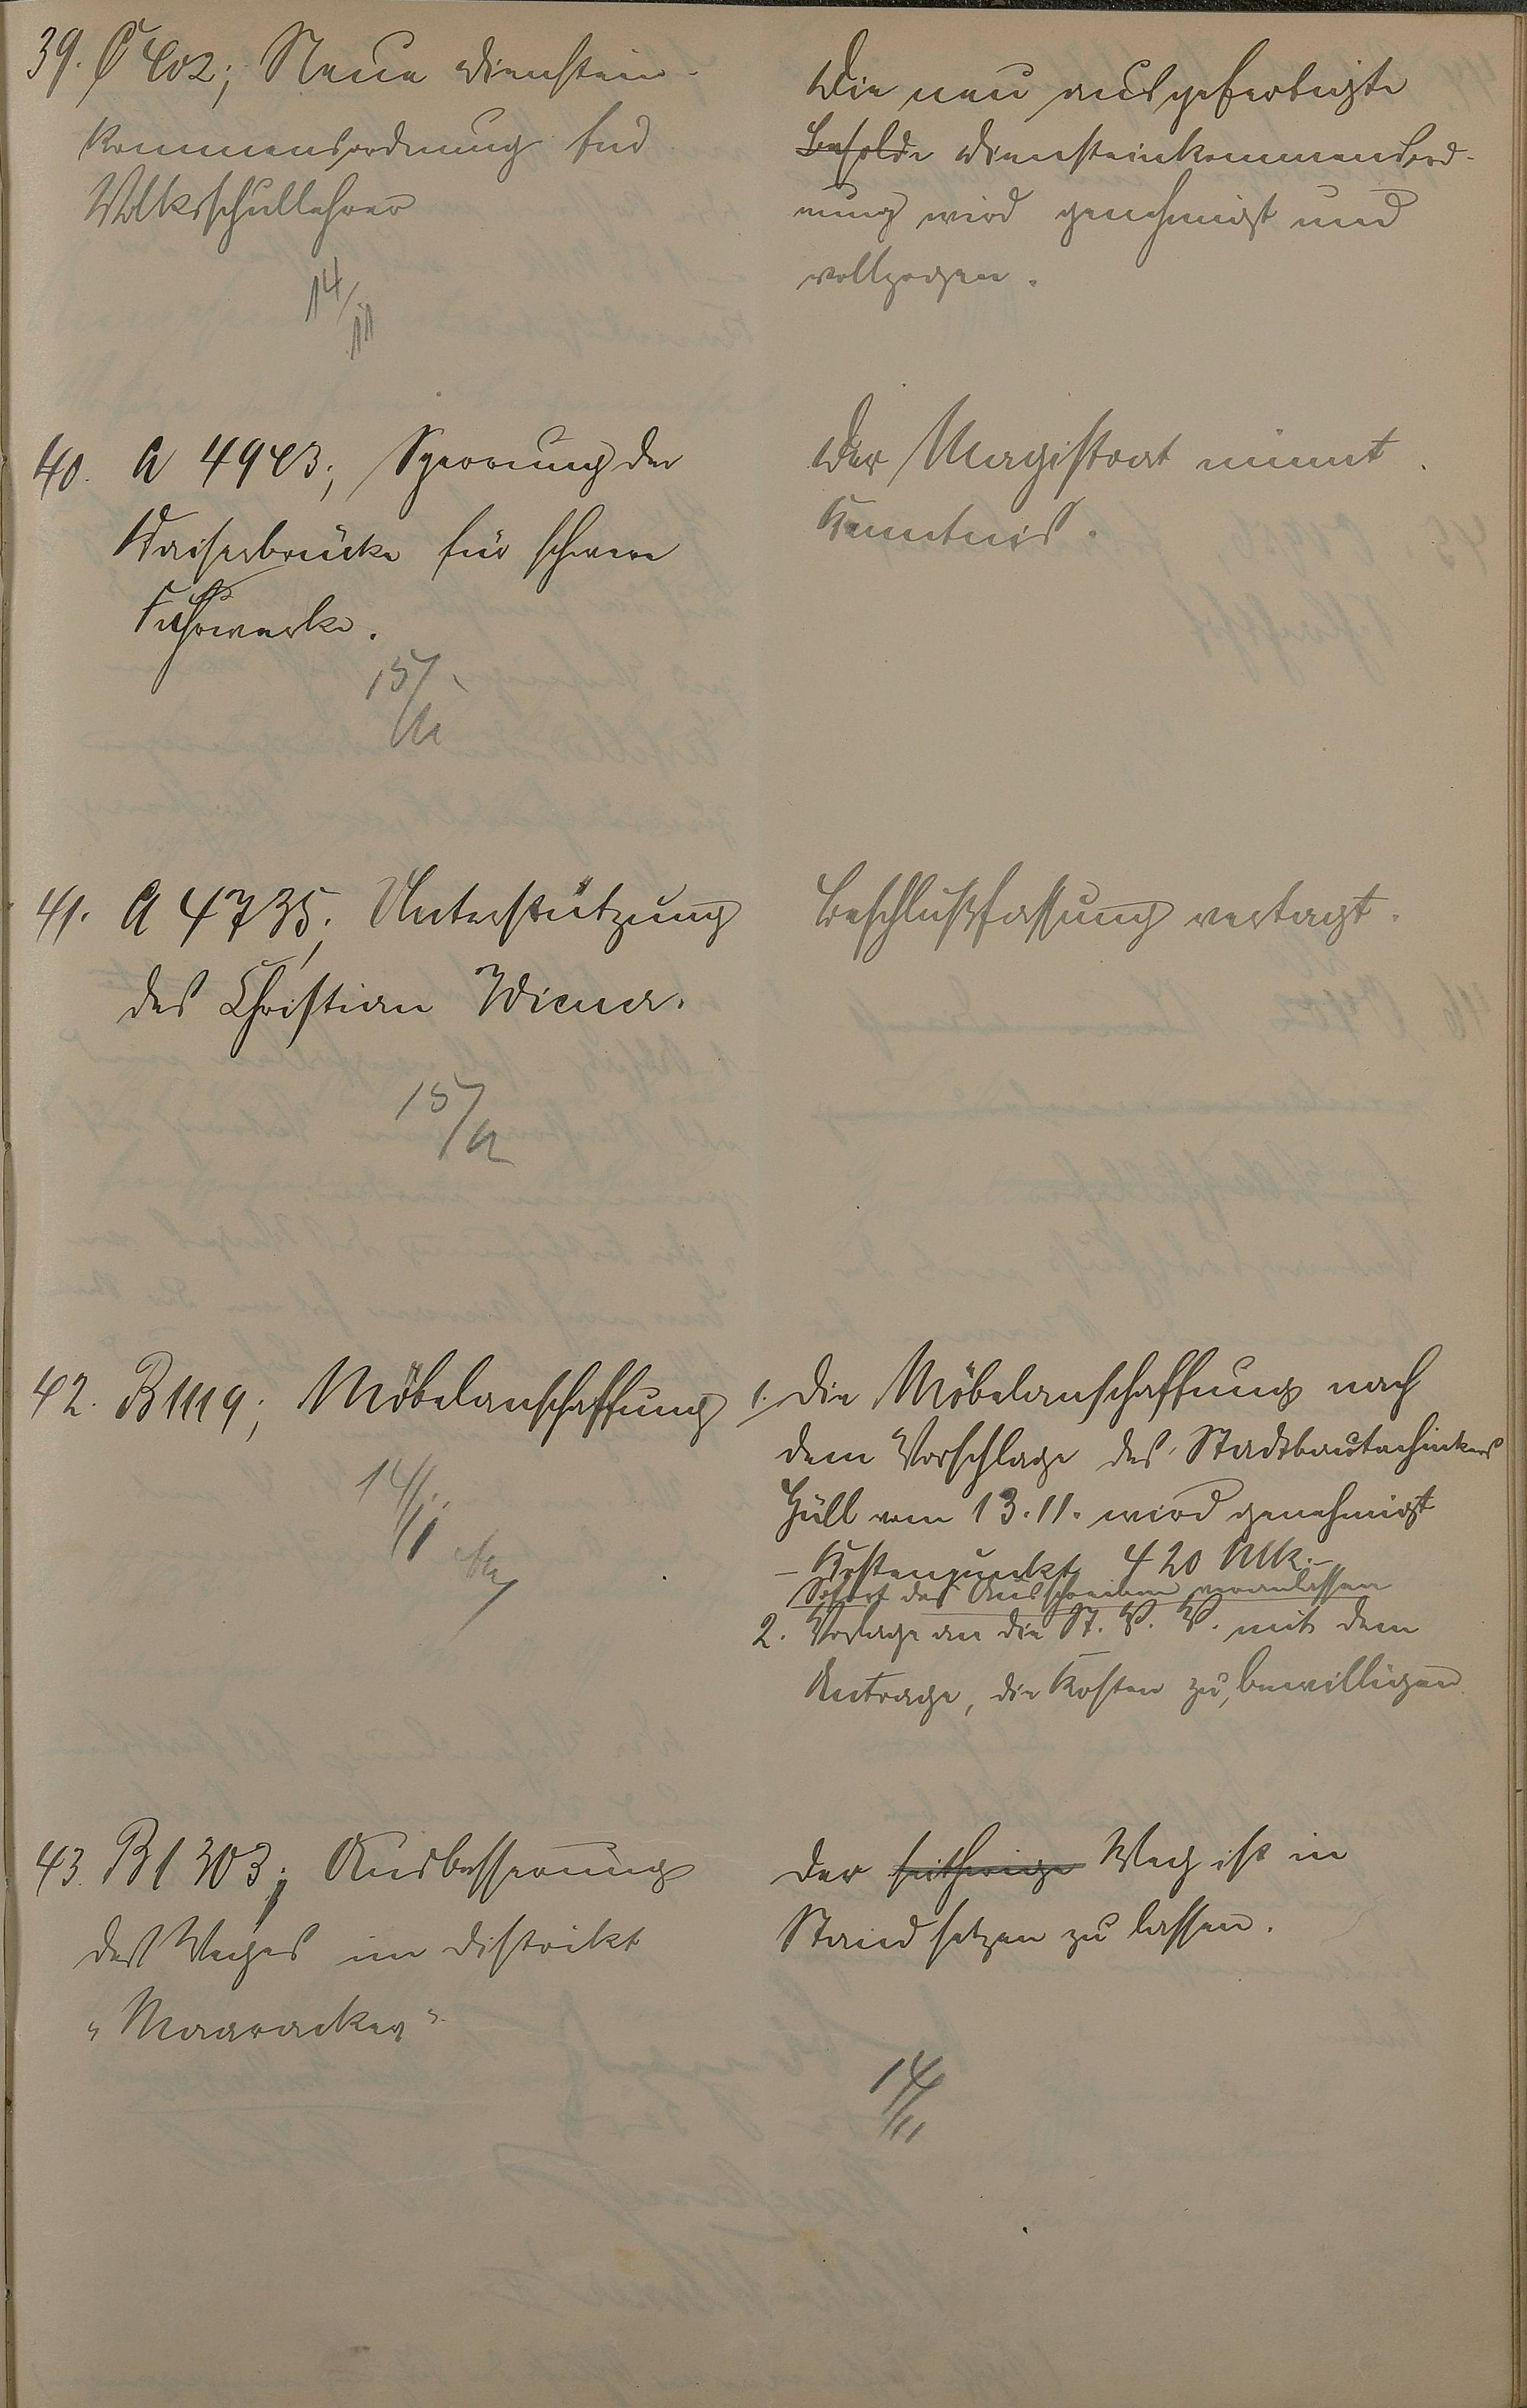 39. C 402; Neue Dienstein-
kommensordnung für
Volksschullehrer
14/11
Die neu ausgefertigte
Besolde Diensteinkommensord-
nung wird genehmigt und
vollzogen.
40. A 4943; Sperrung der
Kaiserbrücke für schwere
Fuhrwerke.
15/11
Der Magistrat nimmt
Kenntnis.
41. A 4735; Unterstützung
des Christian Wiener.
15/11
Beschlußfassung vertagt.
42. B 1119; Möbelanschaffung
14/11
1. Die Möbelanschaffung nach
dem Vorschlage des Stadtbautechnikers
Hüll vom 13.11. wird genehmigt
- Kostenpunkt 420 Mk. -
Sofort das Ausschreiben veranlassen
2. Vorlage an die St. V. V. mit dem
Antrage, die Kosten zu bewilligen
43. B 1303; Ausbesserung
des Weges im Distrikt
"Maaracker"
Der seitherige Weg ist in
Stand setzen zu lassen.
14/11